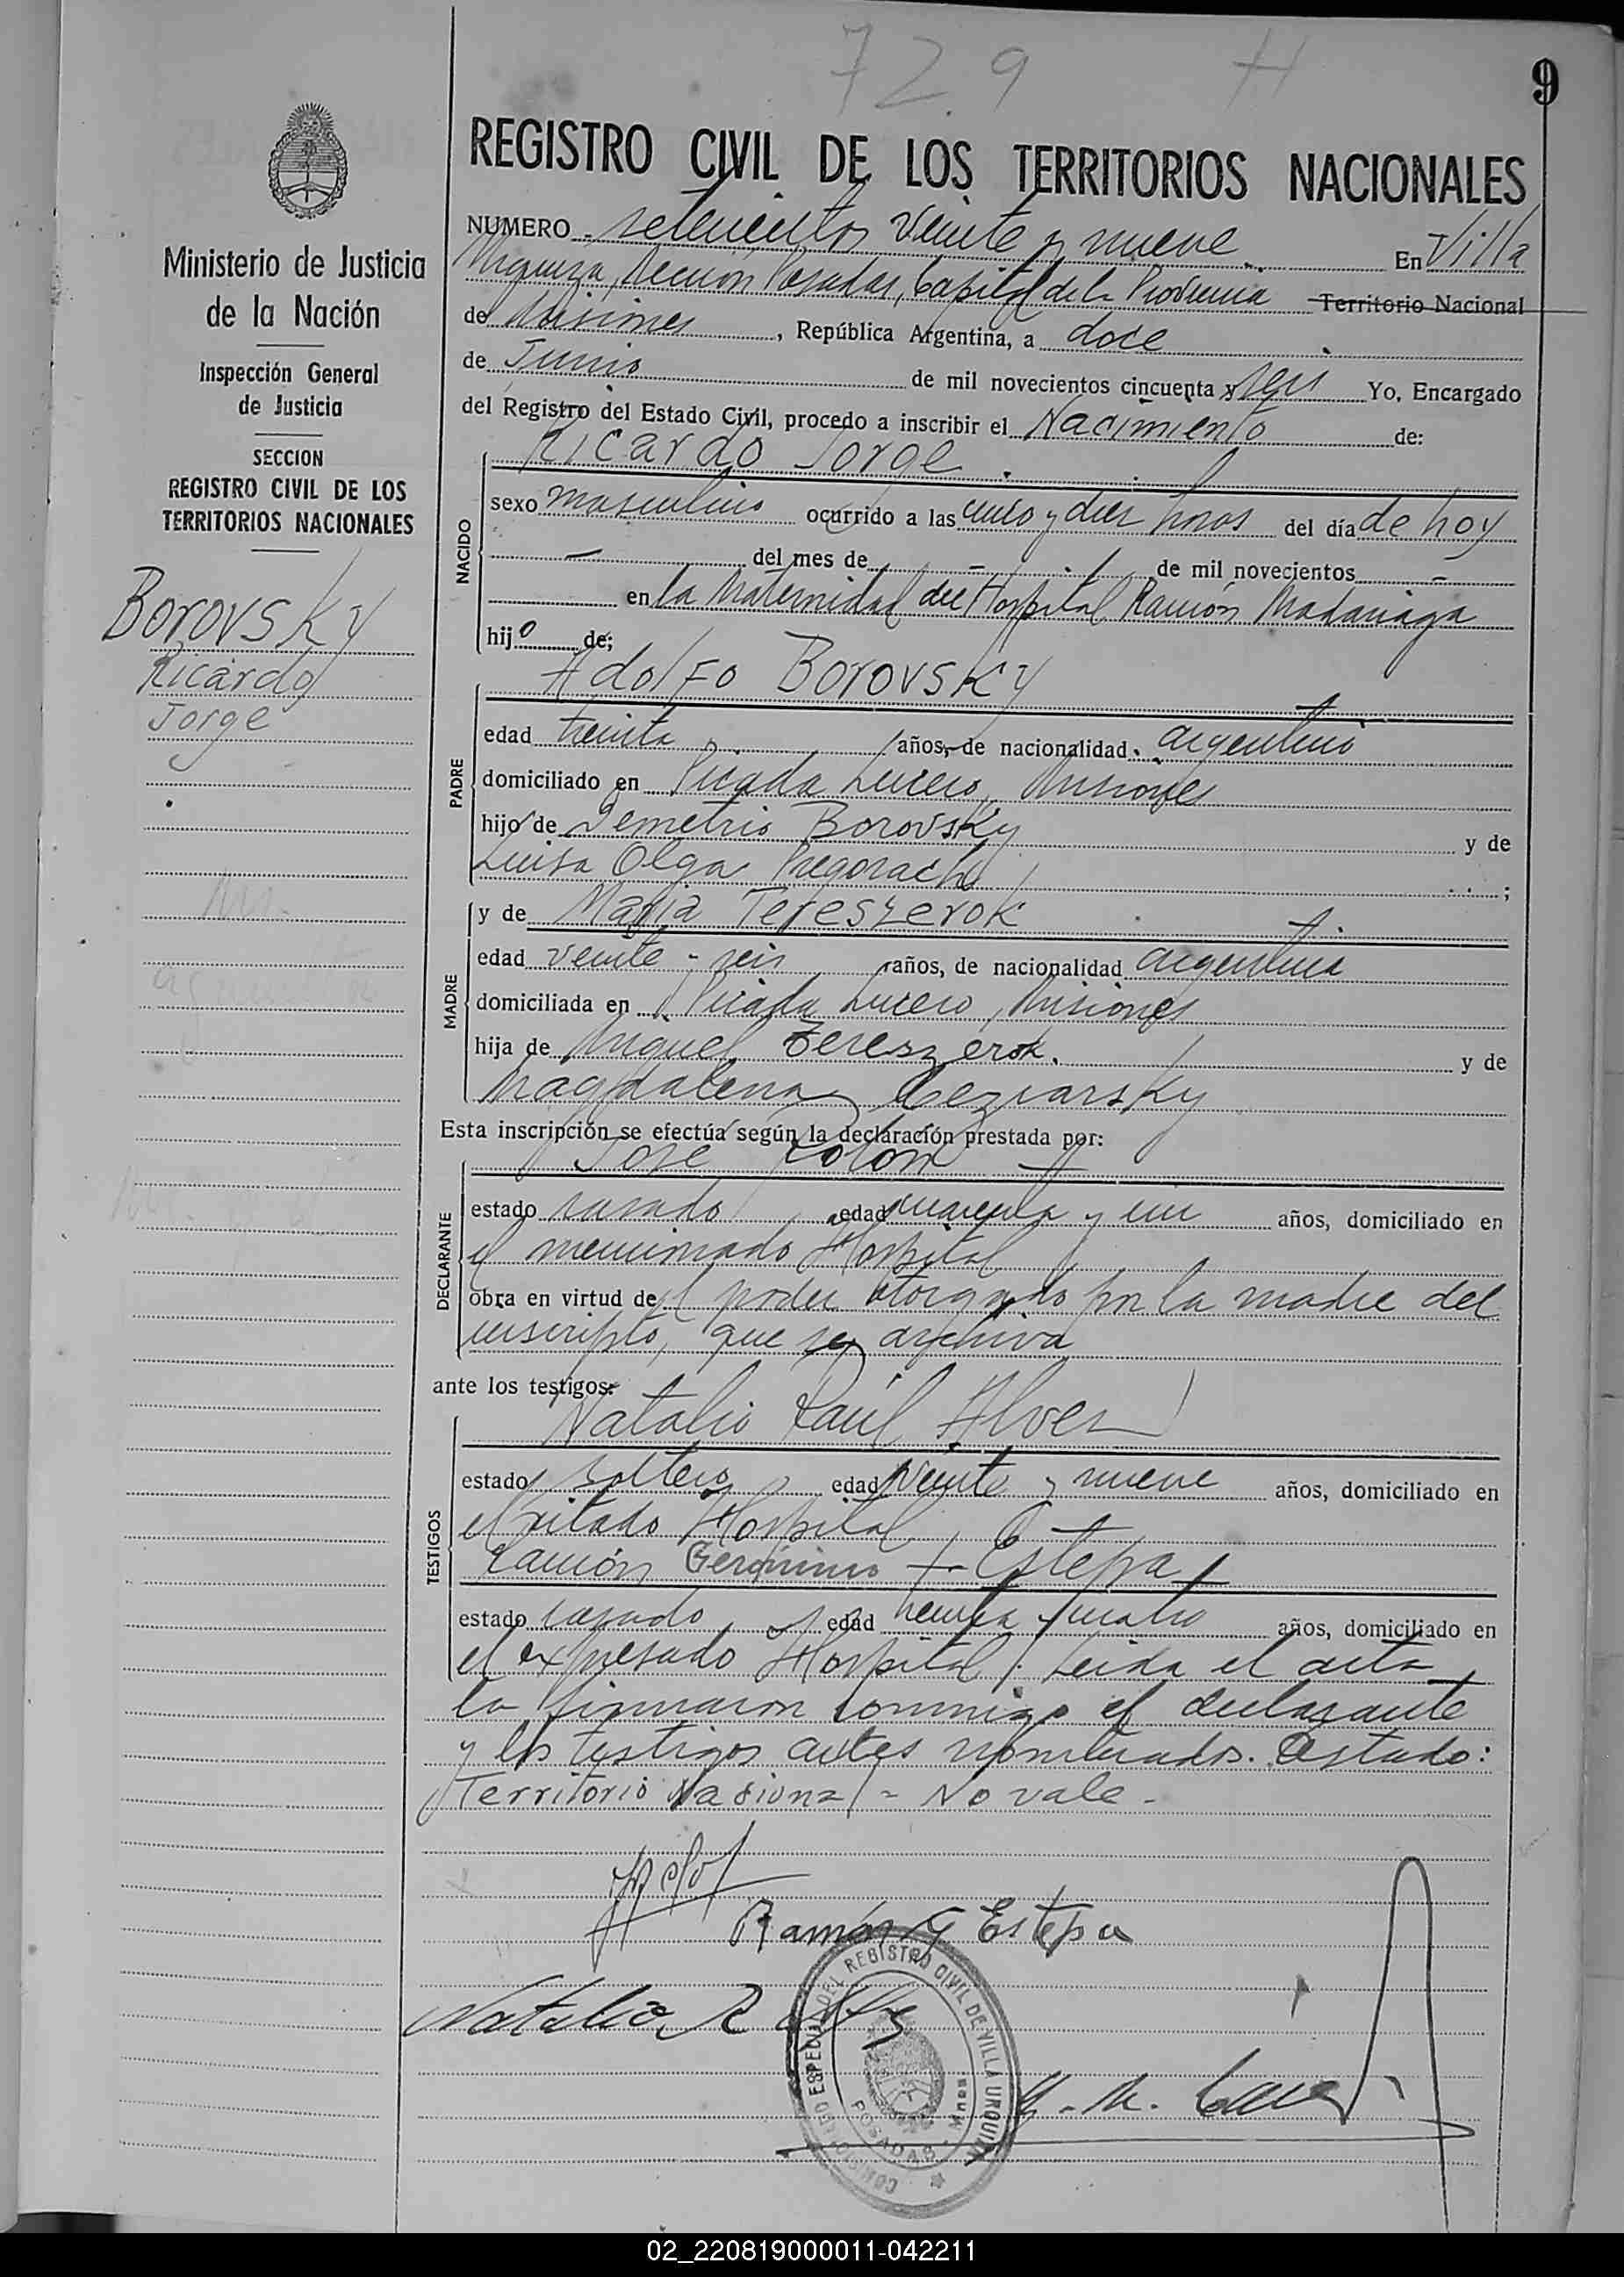 729 H
9
REGISTRO CIVIL DE LOS TERRITORIOS NACIONALES
NUMERO setecientos veinte y nueve En Villa
Urquiza, Sección Posadas, Capital de la Provincia Territorio Nacional
de Misiones, República Argentina, a doce
de Junio de mil novecientos cincuenta y seis Yo, Encargado
del Registro del Estado Civil, procedo a inscribir el Nacimiento de:
Ministerio de Justicia
de la Nación
Inspección General
de Justicia
SECCION
REGISTRO CIVIL DE LOS
TERRITORIOS NACIONALES
Borovsky
Ricardo
Jorge
NACIDO
Ricardo Jorge
sexo masculino ocurrido a las cinco y diez horas del día de hoy
- del mes de - de mil novecientos -
en la Maternidad del Hospital Ramón Madariaga
hijo de:
PADRE
Adolfo Borovsky
edad treinta años, de nacionalidad argentino
domiciliado en Picada Lucero, Misiones
hijo de Demetrio Borovsky y de
Luisa Olga ;
MADRE
y de María Tereszerok
edad veinte - seis años, de nacionalidad argentina
domiciliada en Picada Lucero, Misiones
hija de Miguel Tereszerok. y de
Magdalena
Esta inscripción se efectúa según la declaración prestada por:
DECLARANTE
José Kolom
estado casado edad cuarenta y un años, domiciliado en
el mencionado Hospital
obra en virtud del poder otorgado por la madre del
inscripto, que se archiva
ante los testigos:
TESTIGOS
Natalio Raúl Alvez
estado soltero edad veinte y nueve años, domiciliado en
el citado Hospital
Ramón Gerónimo Estepa
estado casado edad treinta y cuatro años, domiciliado en
el expresado Hospital. Leída el acta,
la firmaron conmigo el declarante
y los testigos antes nombrados. Testado:
Territorio Nacional - No vale -
Ramón G Estepa
Natalio R
DEL REGISTRO CIVIL DE VILLA URQUIZA
POSADAS - Mnes.
02_220819000011-042211